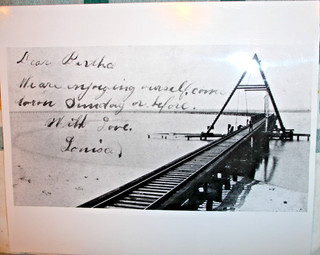 Dear Pertha
We are enjoying ourself, come
down Sunday or before.
With Love.
Louisa